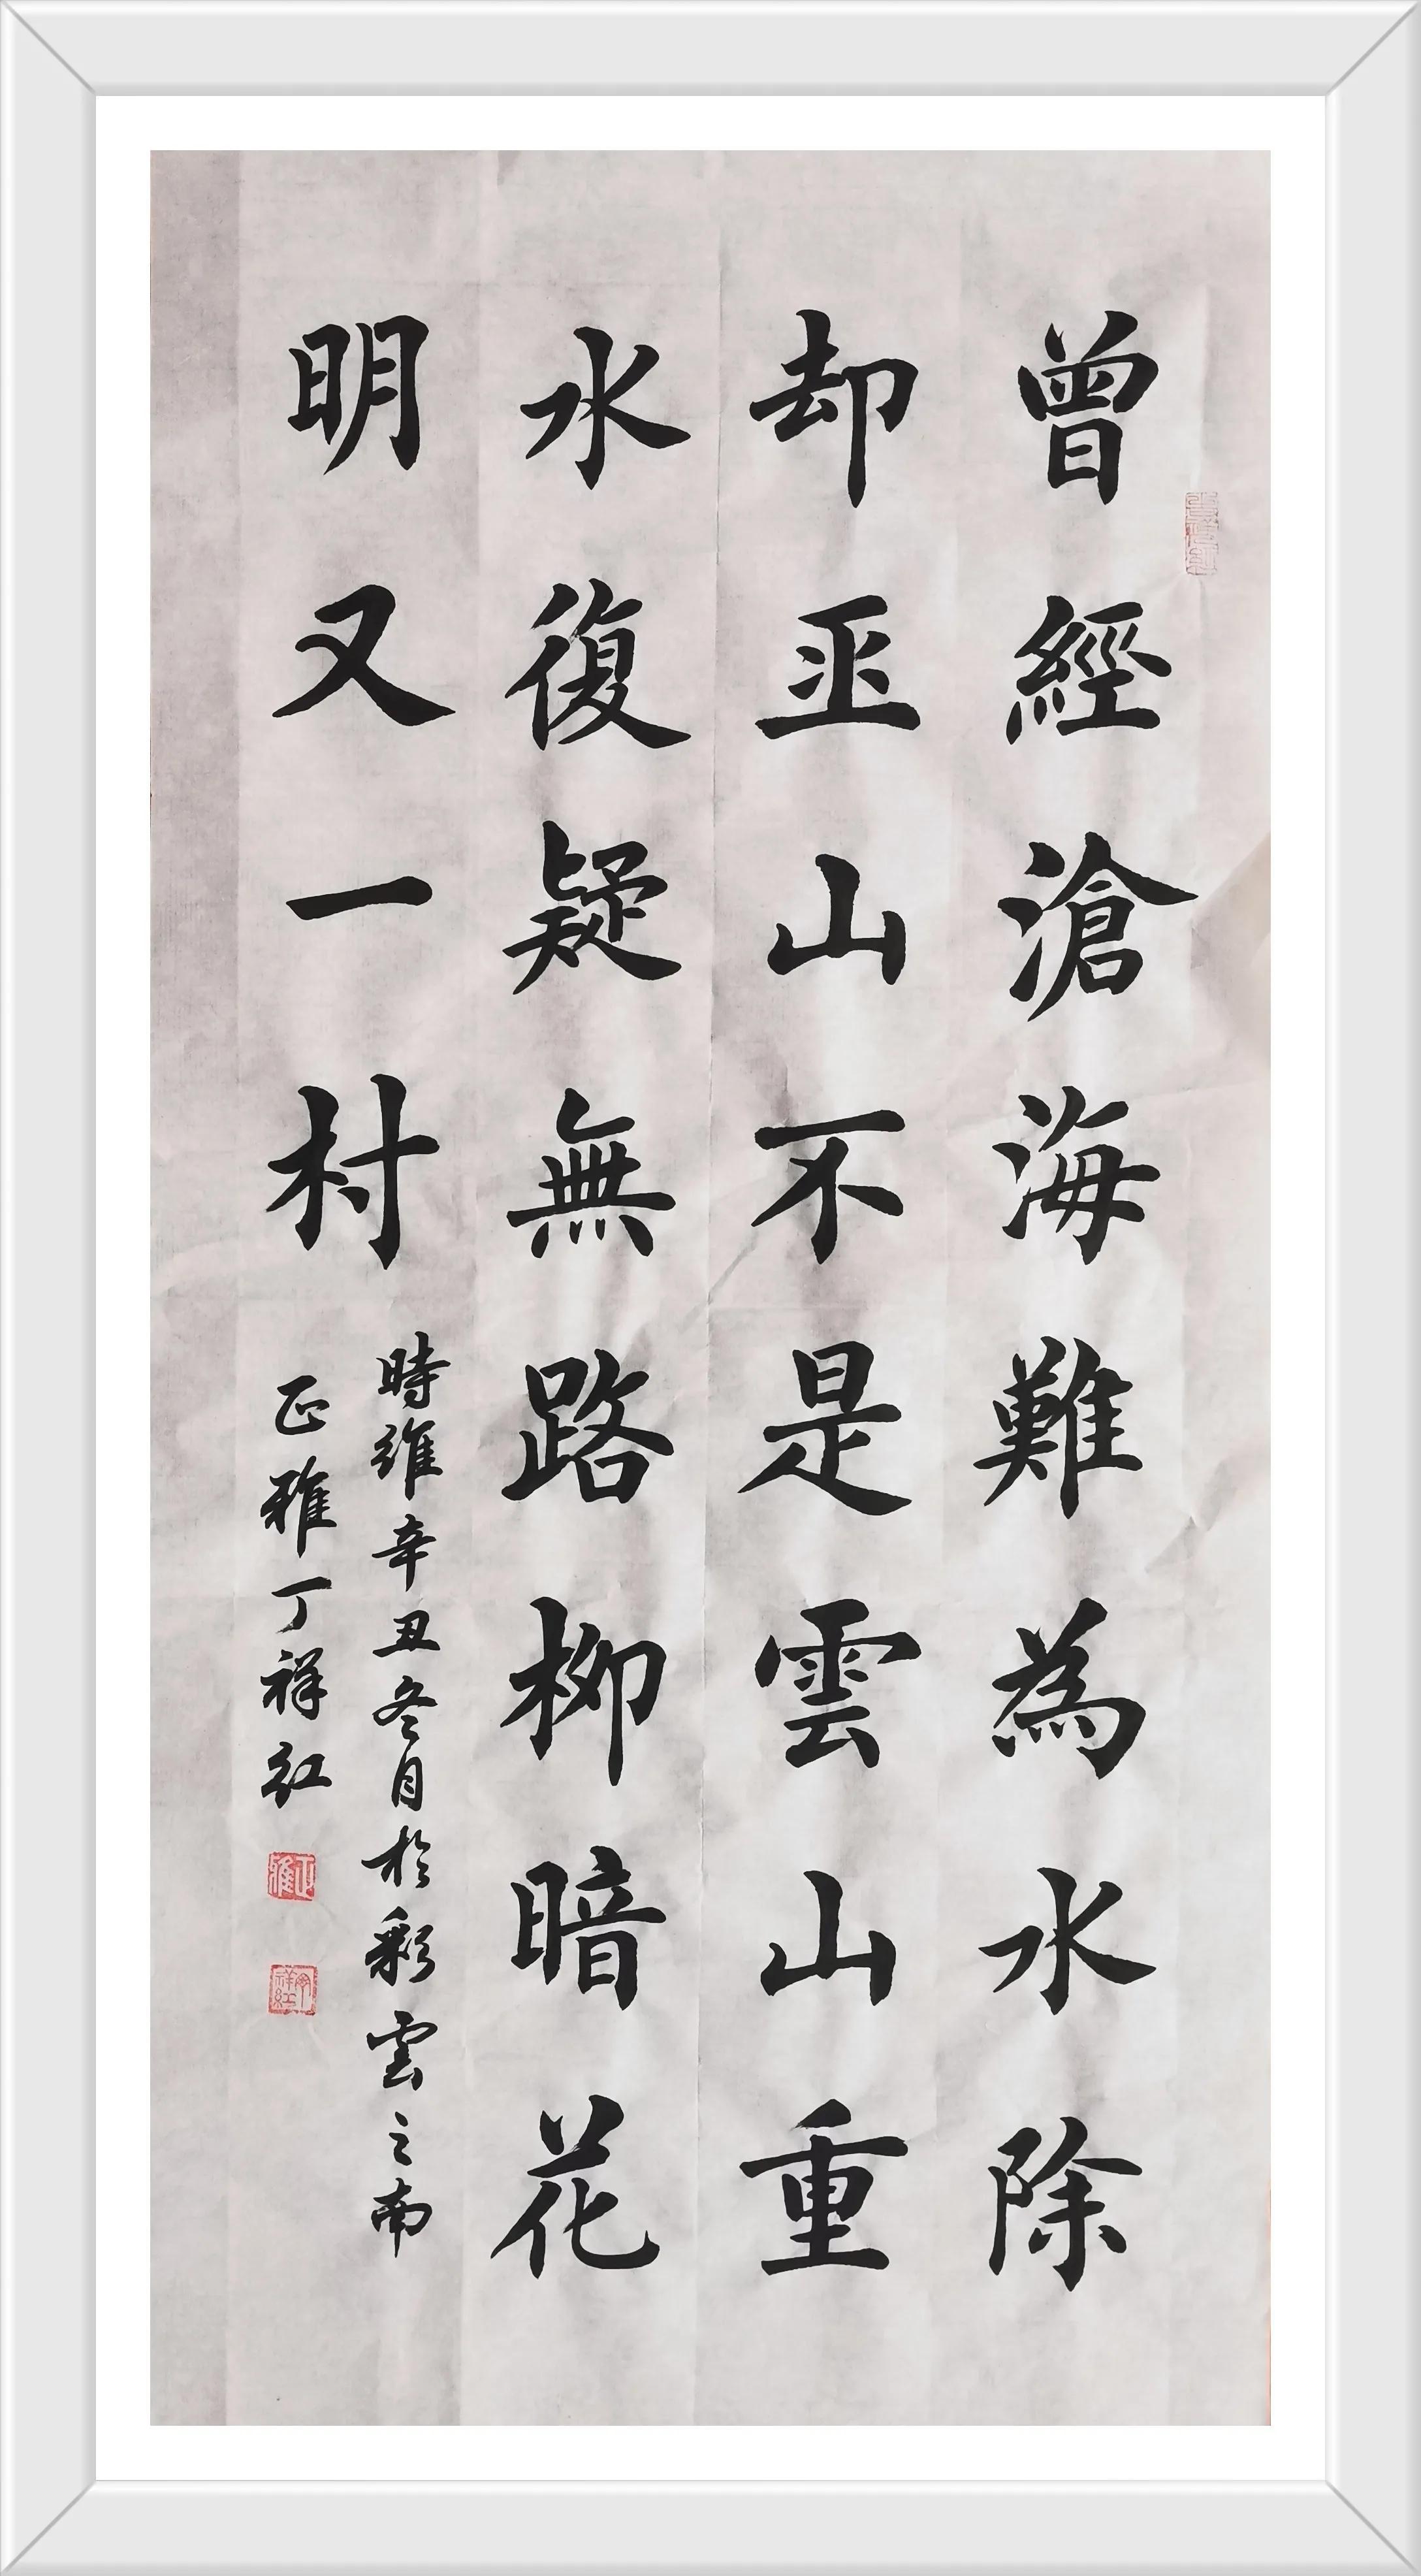 曾經滄海難為水除
却巫山不是雲山重
水復疑無路柳暗花
明又一村
時維辛丑冬月於彩雲之南
正雅丁祥红
正雅